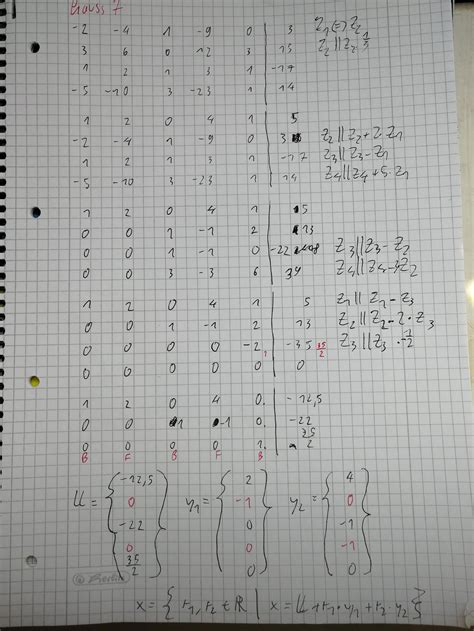 Gauss 7
-2 -4 1 -9 0 | 3 Z1 <=> Z2
3 6 0 12 3 | 15 Z2 || Z2 · 1/3
1 2 1 3 1 | -17
-5 -10 3 -23 1 | 14
1 2 0 4 1 | 5
-2 -4 1 -9 0 | 3 Z2 || Z2 + 2·Z1
1 2 1 3 1 | -17 Z3 || Z3 - Z1
-5 -10 3 -23 1 | 14 Z4 || Z4 + 5·Z1
1 2 0 4 1 | 5
0 0 1 -1 2 | 13
0 0 1 -1 0 | -22 Z3 || Z3 - Z2
0 0 3 -3 6 | 39 Z4 || Z4 - 3Z2
1 2 0 4 1 | 5 Z1 || Z1 - Z3
0 0 1 -1 2 | 13 Z2 || Z2 - 2·Z3
0 0 0 0 -2 | -35 35/2 Z3 || Z3 · 1/-2
0 0 0 0 0 | 0
1 2 0 4 0 | -12,5
0 0 1 -1 0 | -22
0 0 0 0 1 | 35/2
B F B F B
U = { -12,5 0 -22 0 35/2 } y1 = { 2 -1 0 0 0 } y2 = { 4 0 -1 -1 0 }
x = { r1, r2 ∈ R | x = U + r1·y1 + r2·y2 }